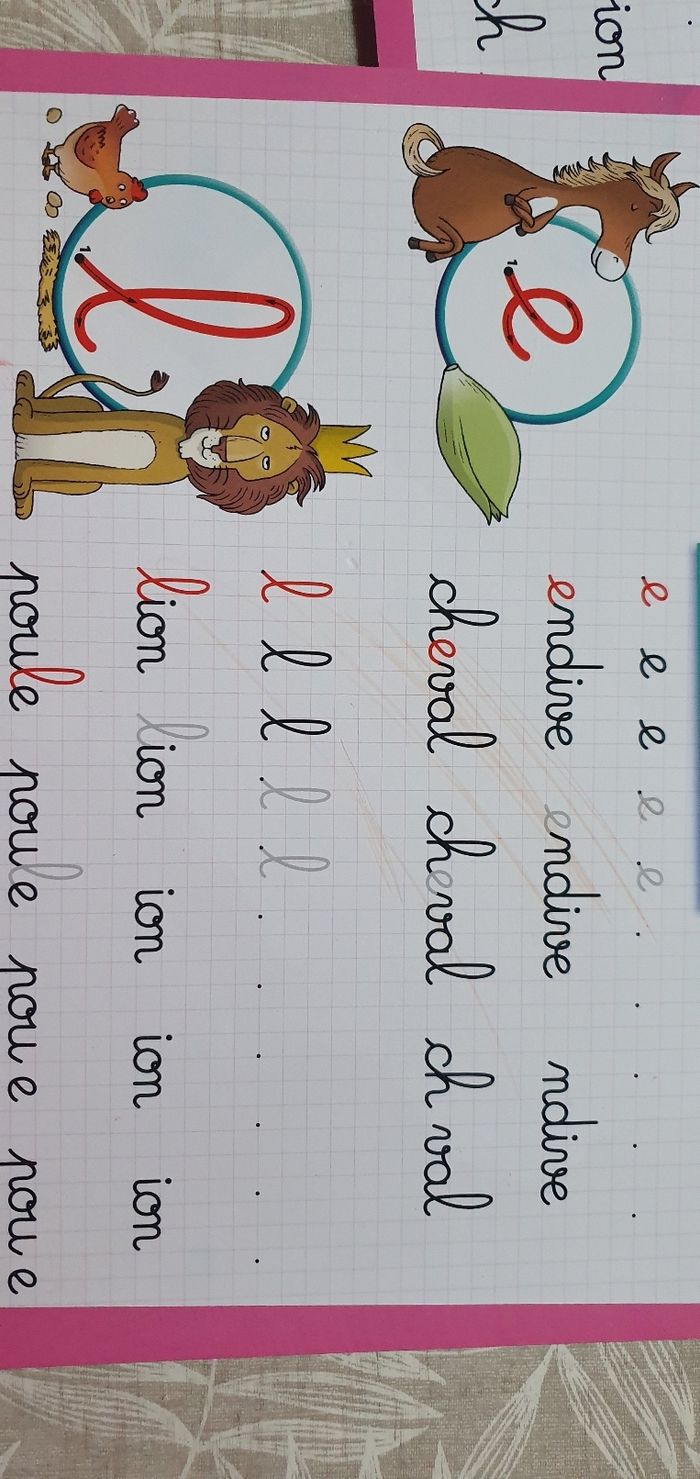 ion
ch
1
e
e e e e e . . . . .
endive endive ndive
cheval cheval ch val
1
l
l l l l l . . . . . .
lion lion ion ion ion
poule poule pou e pou e